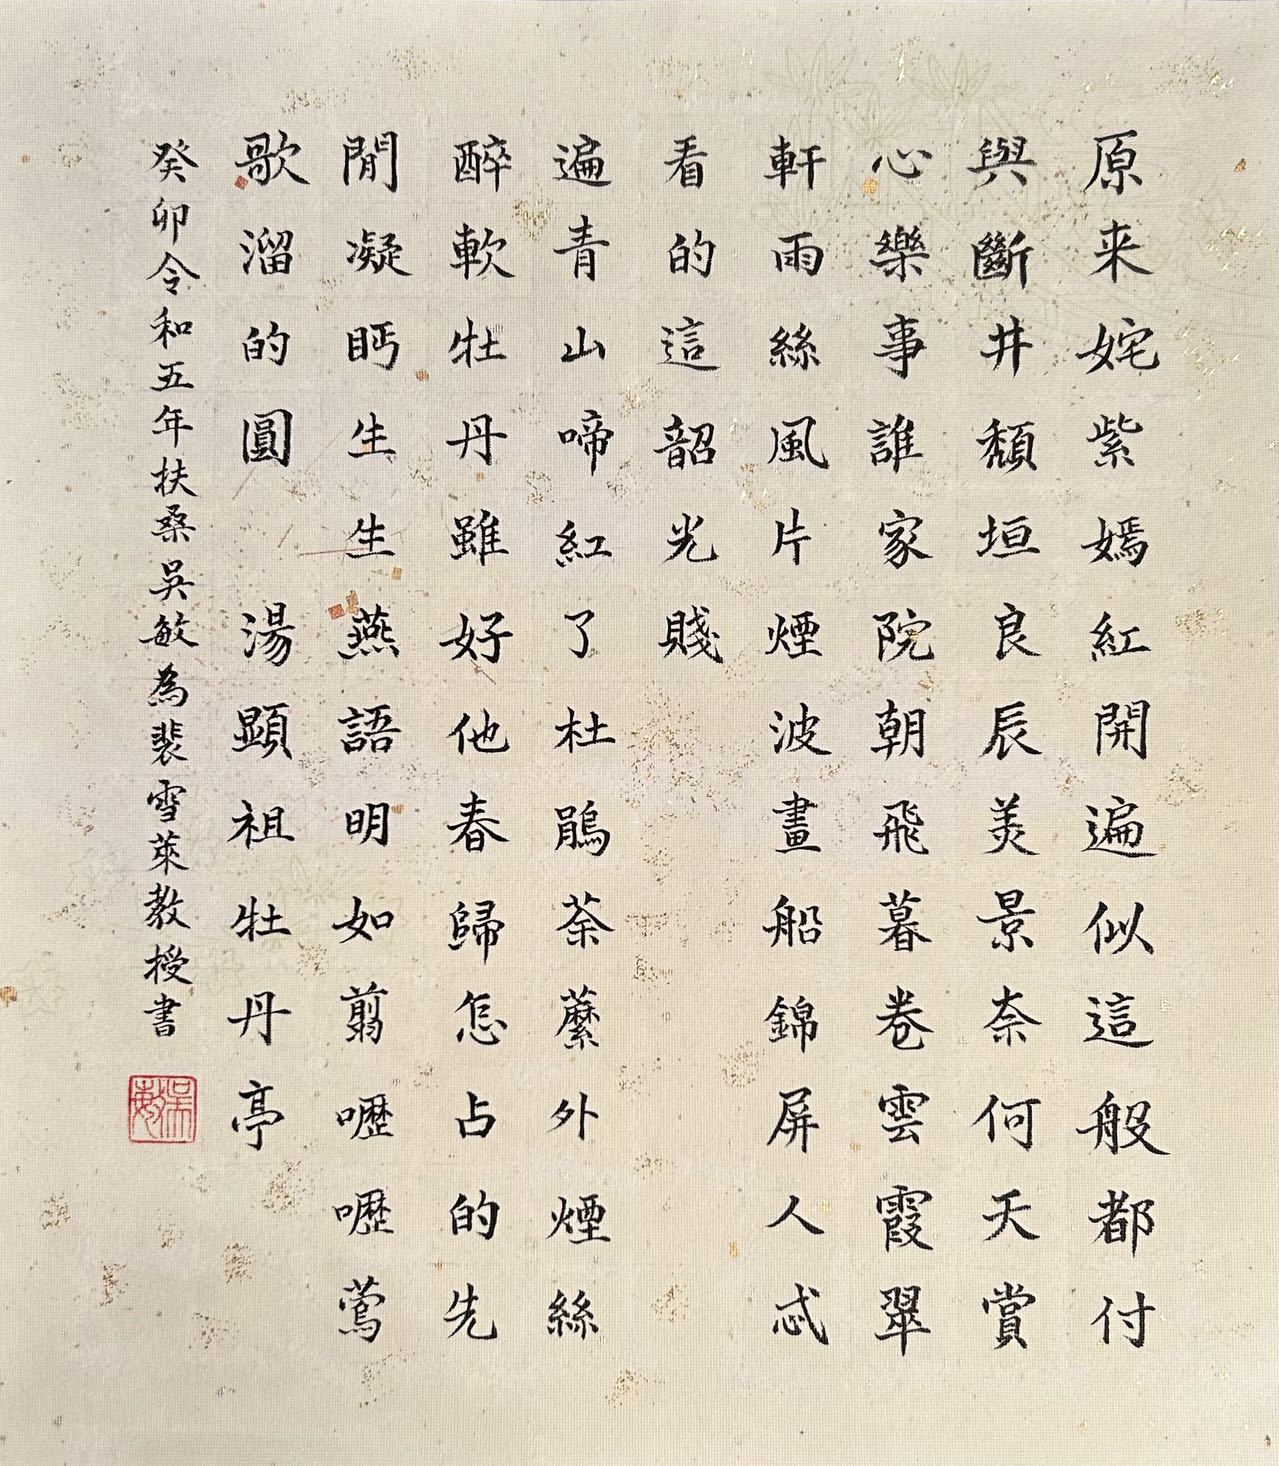 原来姹紫嫣紅開遍似這般都付
與斷井頹垣良辰美景奈何天賞
心樂事誰家院朝飛暮卷雲霞翠
軒雨絲風片煙波畫船錦屏人忒
看的這韶光賤
遍青山啼紅了杜鵑荼蘼外煙絲
醉軟牡丹雖好他春歸怎占的先
閒凝眄生生燕語明如翦嚦嚦鶯
歌溜的圓 湯顯祖牡丹亭
癸卯令和五年扶桑吳敏為裴雪萊教授書
吳敏